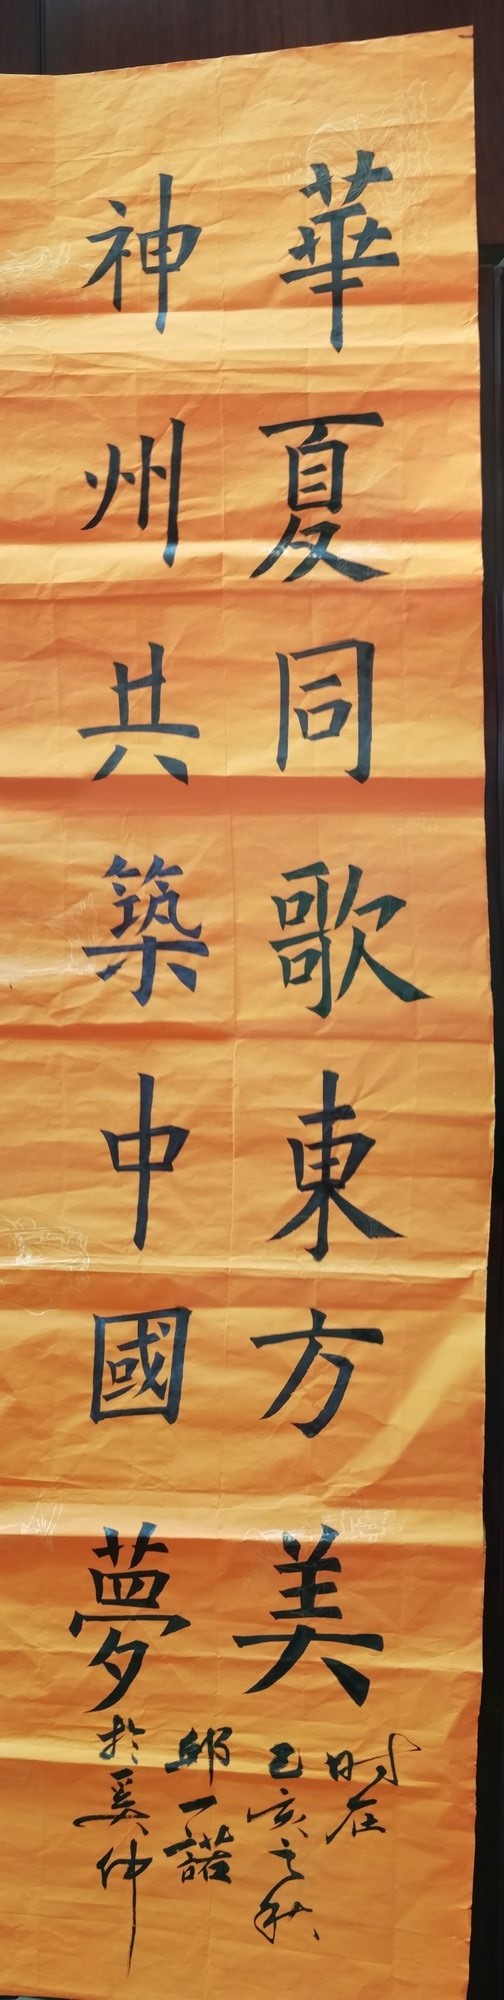 華夏同歌東方美
神州共築中國夢
时在
己亥之秋
邱一諾
於奚仲